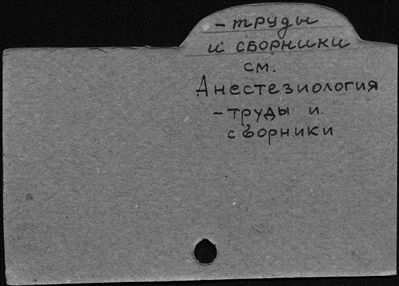 - труды
и сборники
см.
Анестезиология
- труды и
сборники